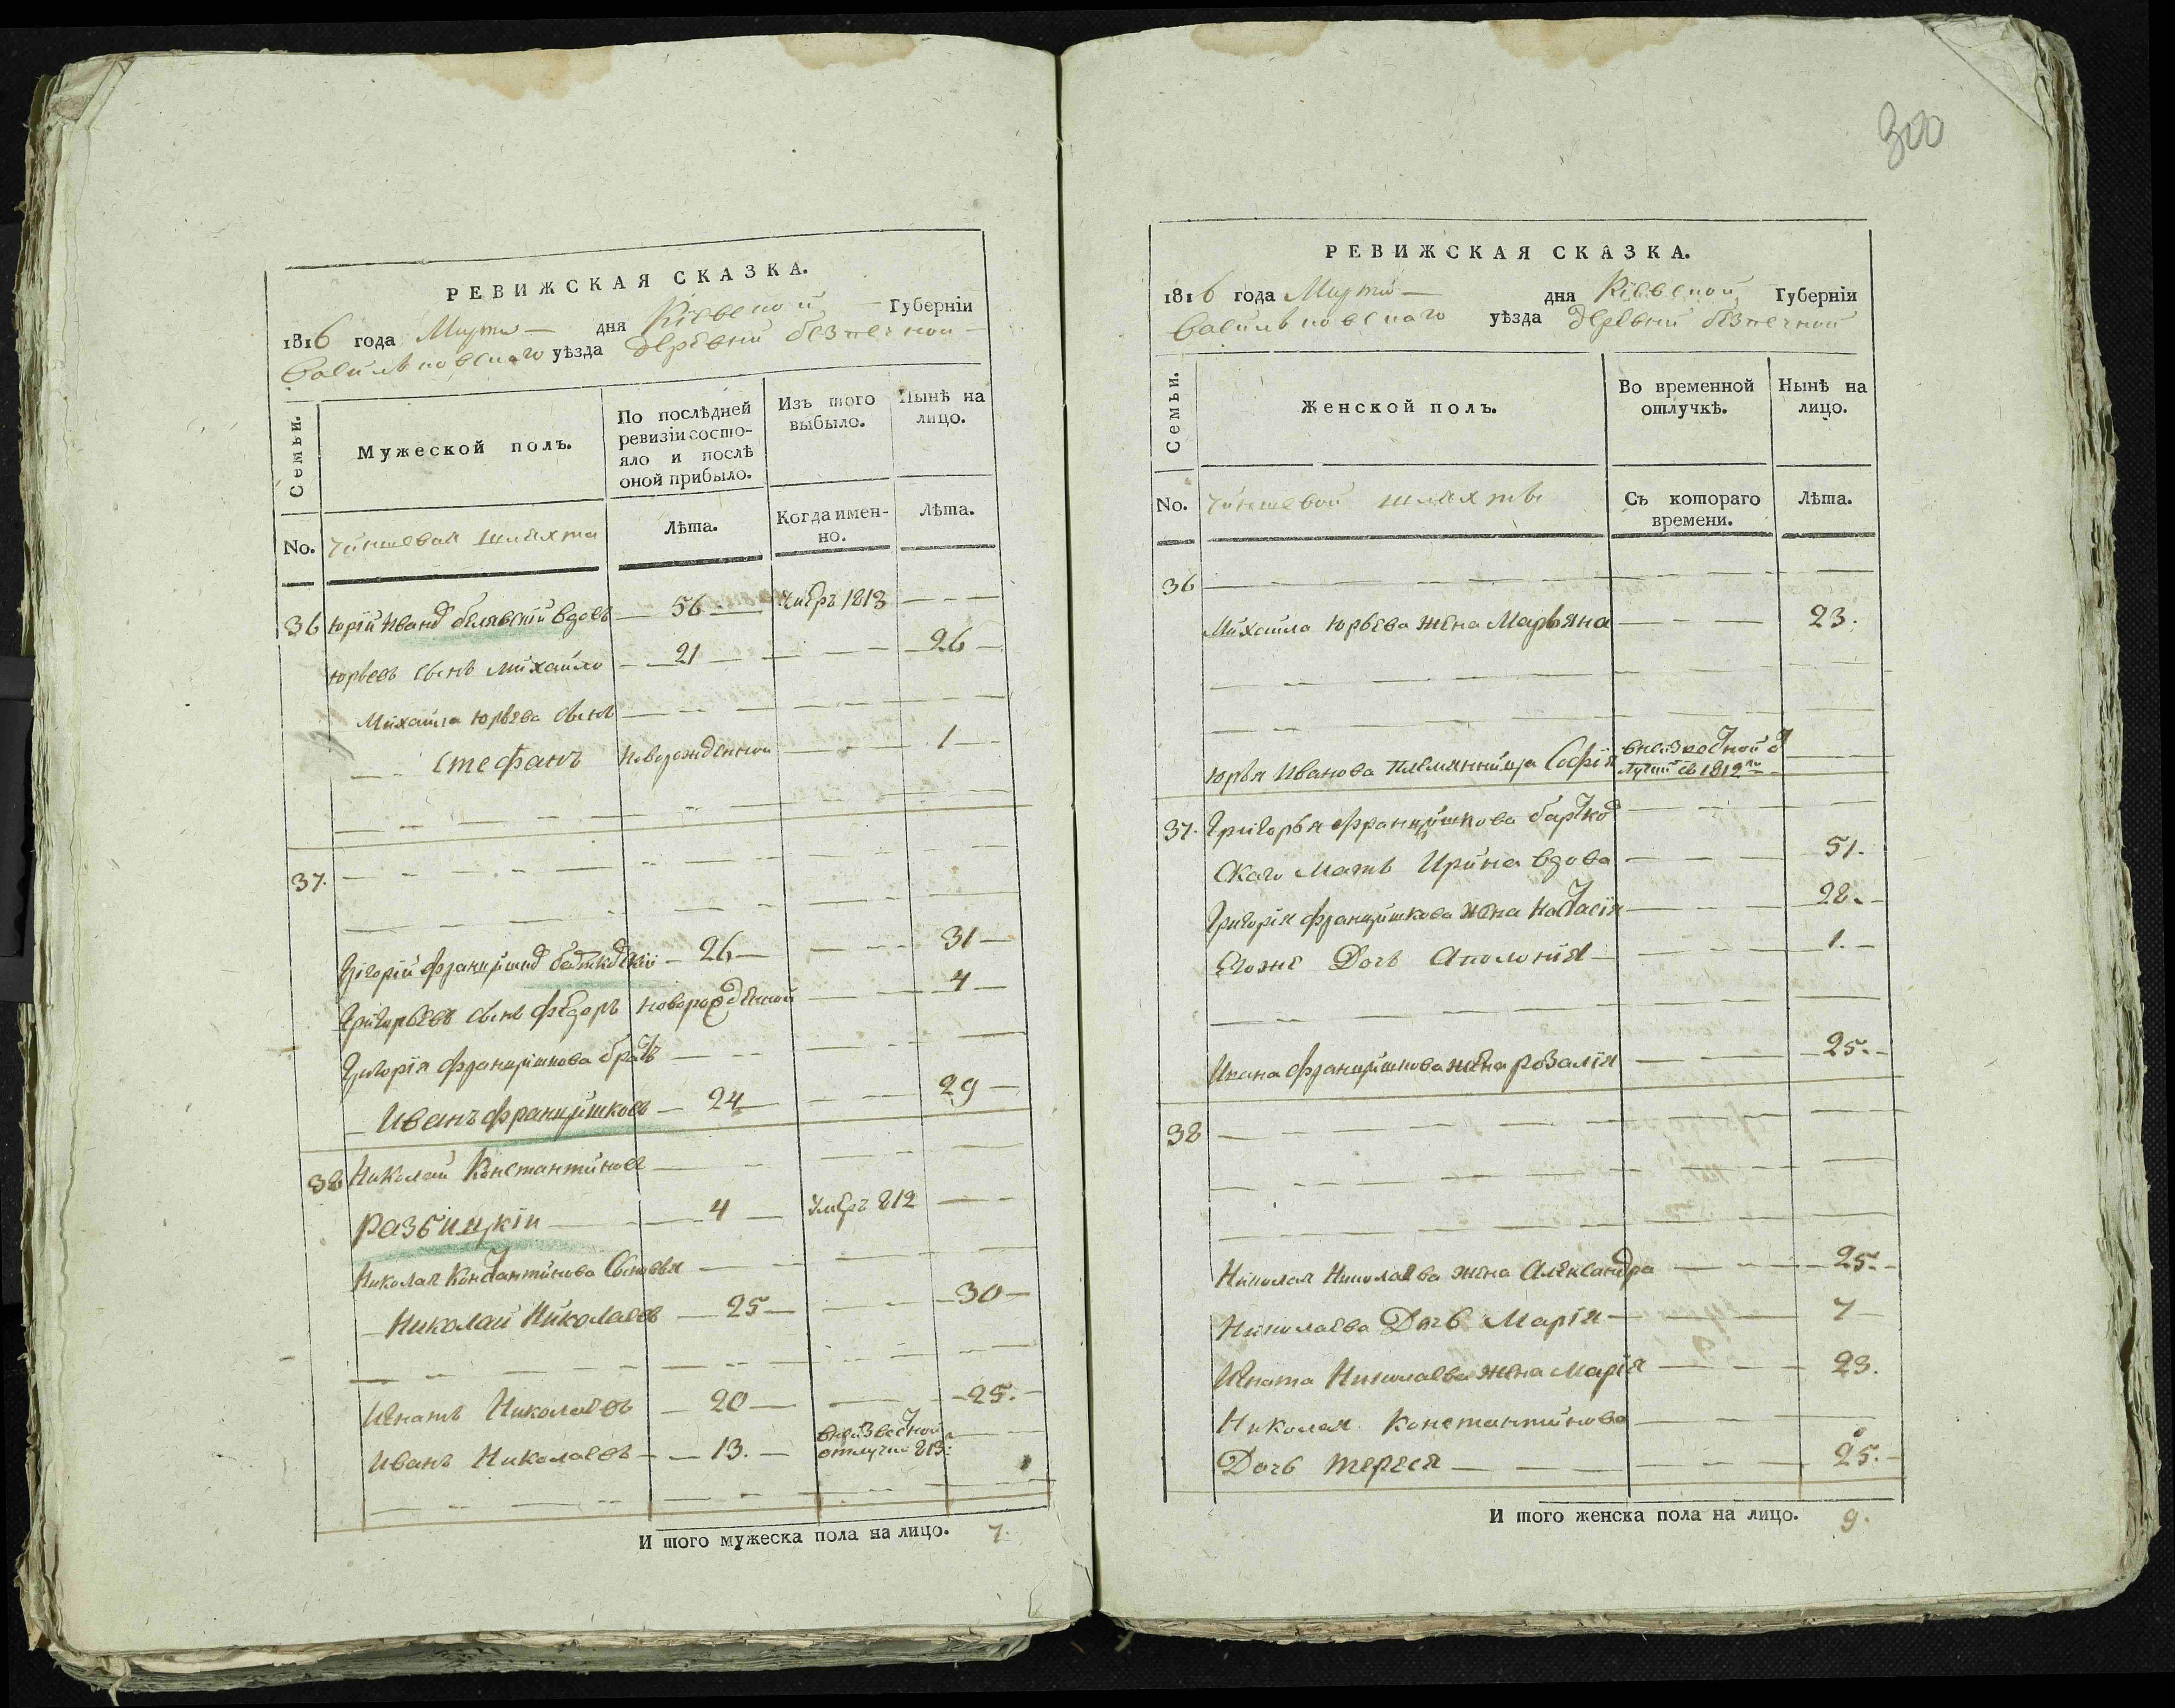 РЕВИЖСКАЯ СКАЗКА.
1816 года Марта — дня Кіевской — Губерніи
Васильковскаго уѣзда деревни безпечной —
Семьи.
Мужеской полъ.
По послѣдней ревизіи состояло и послѣ оной прибыло.
Изъ того выбыло.
Нынѣ на лицо.
No. Чиншевая шляхта
Лѣта.
Когда именно.
Лѣта.
36 Юрій Иванов белявскій вдовъ — 56 — Умеръ 1813 — — —
Юрьевъ сынъ Михайло — 21 — — — 26 —
Михайла Юрьева сынъ
Стефанъ Новорожденной — — 1 —
37.
Григорій францишков — 26 — — — 31 —
Григорьевъ сынъ федоръ новорожденной — — 4 —
Григорія францишкова братъ —
Иванъ францишковъ — 24 — — — 29 —
38 Николай Константиновъ —
Разбицкій — 4 — Умеръ 812 — —
Николая Константинова Сыновья —
Николай Николаевъ — 25 — — — 30 —
Игнатъ Николаевъ — 20 — — — 25. —
Иванъ Николаевъ — 13. — внеизвестной отлучки 813:
И того мужеска пола на лицо. 7.
300
РЕВИЖСКАЯ СКАЗКА.
1816 года Марта — дня Кіевской Губерніи
Васильковскаго уѣзда деревни безпечной
Семьи.
Женской полъ.
Во временной отлучкѣ.
Нынѣ на лицо.
No. Чиншевой шляхты
Съ котораго времени.
Лѣта.
36
Михайла Юрьева жена Марьяна — — — 23.
Юрья Иванова племянница Софія
37. Григорья францишкова
скаго мать Ирина вдова — — — 51.
Григорія францишкова жена Настасія — — 28. —
Егоже Дочь Аполонія — — — 1. —
Ивана францишкова жена розалія — — 25. —
38
Николая Николаева жена Александра — — 25. —
Николаева Дочь Марія — — — 7 —
Игната Николаева жена Марія — — — 23.
Николая Константинова — —
Дочь тереся — — — 25. —
И того женска пола на лицо. 9.